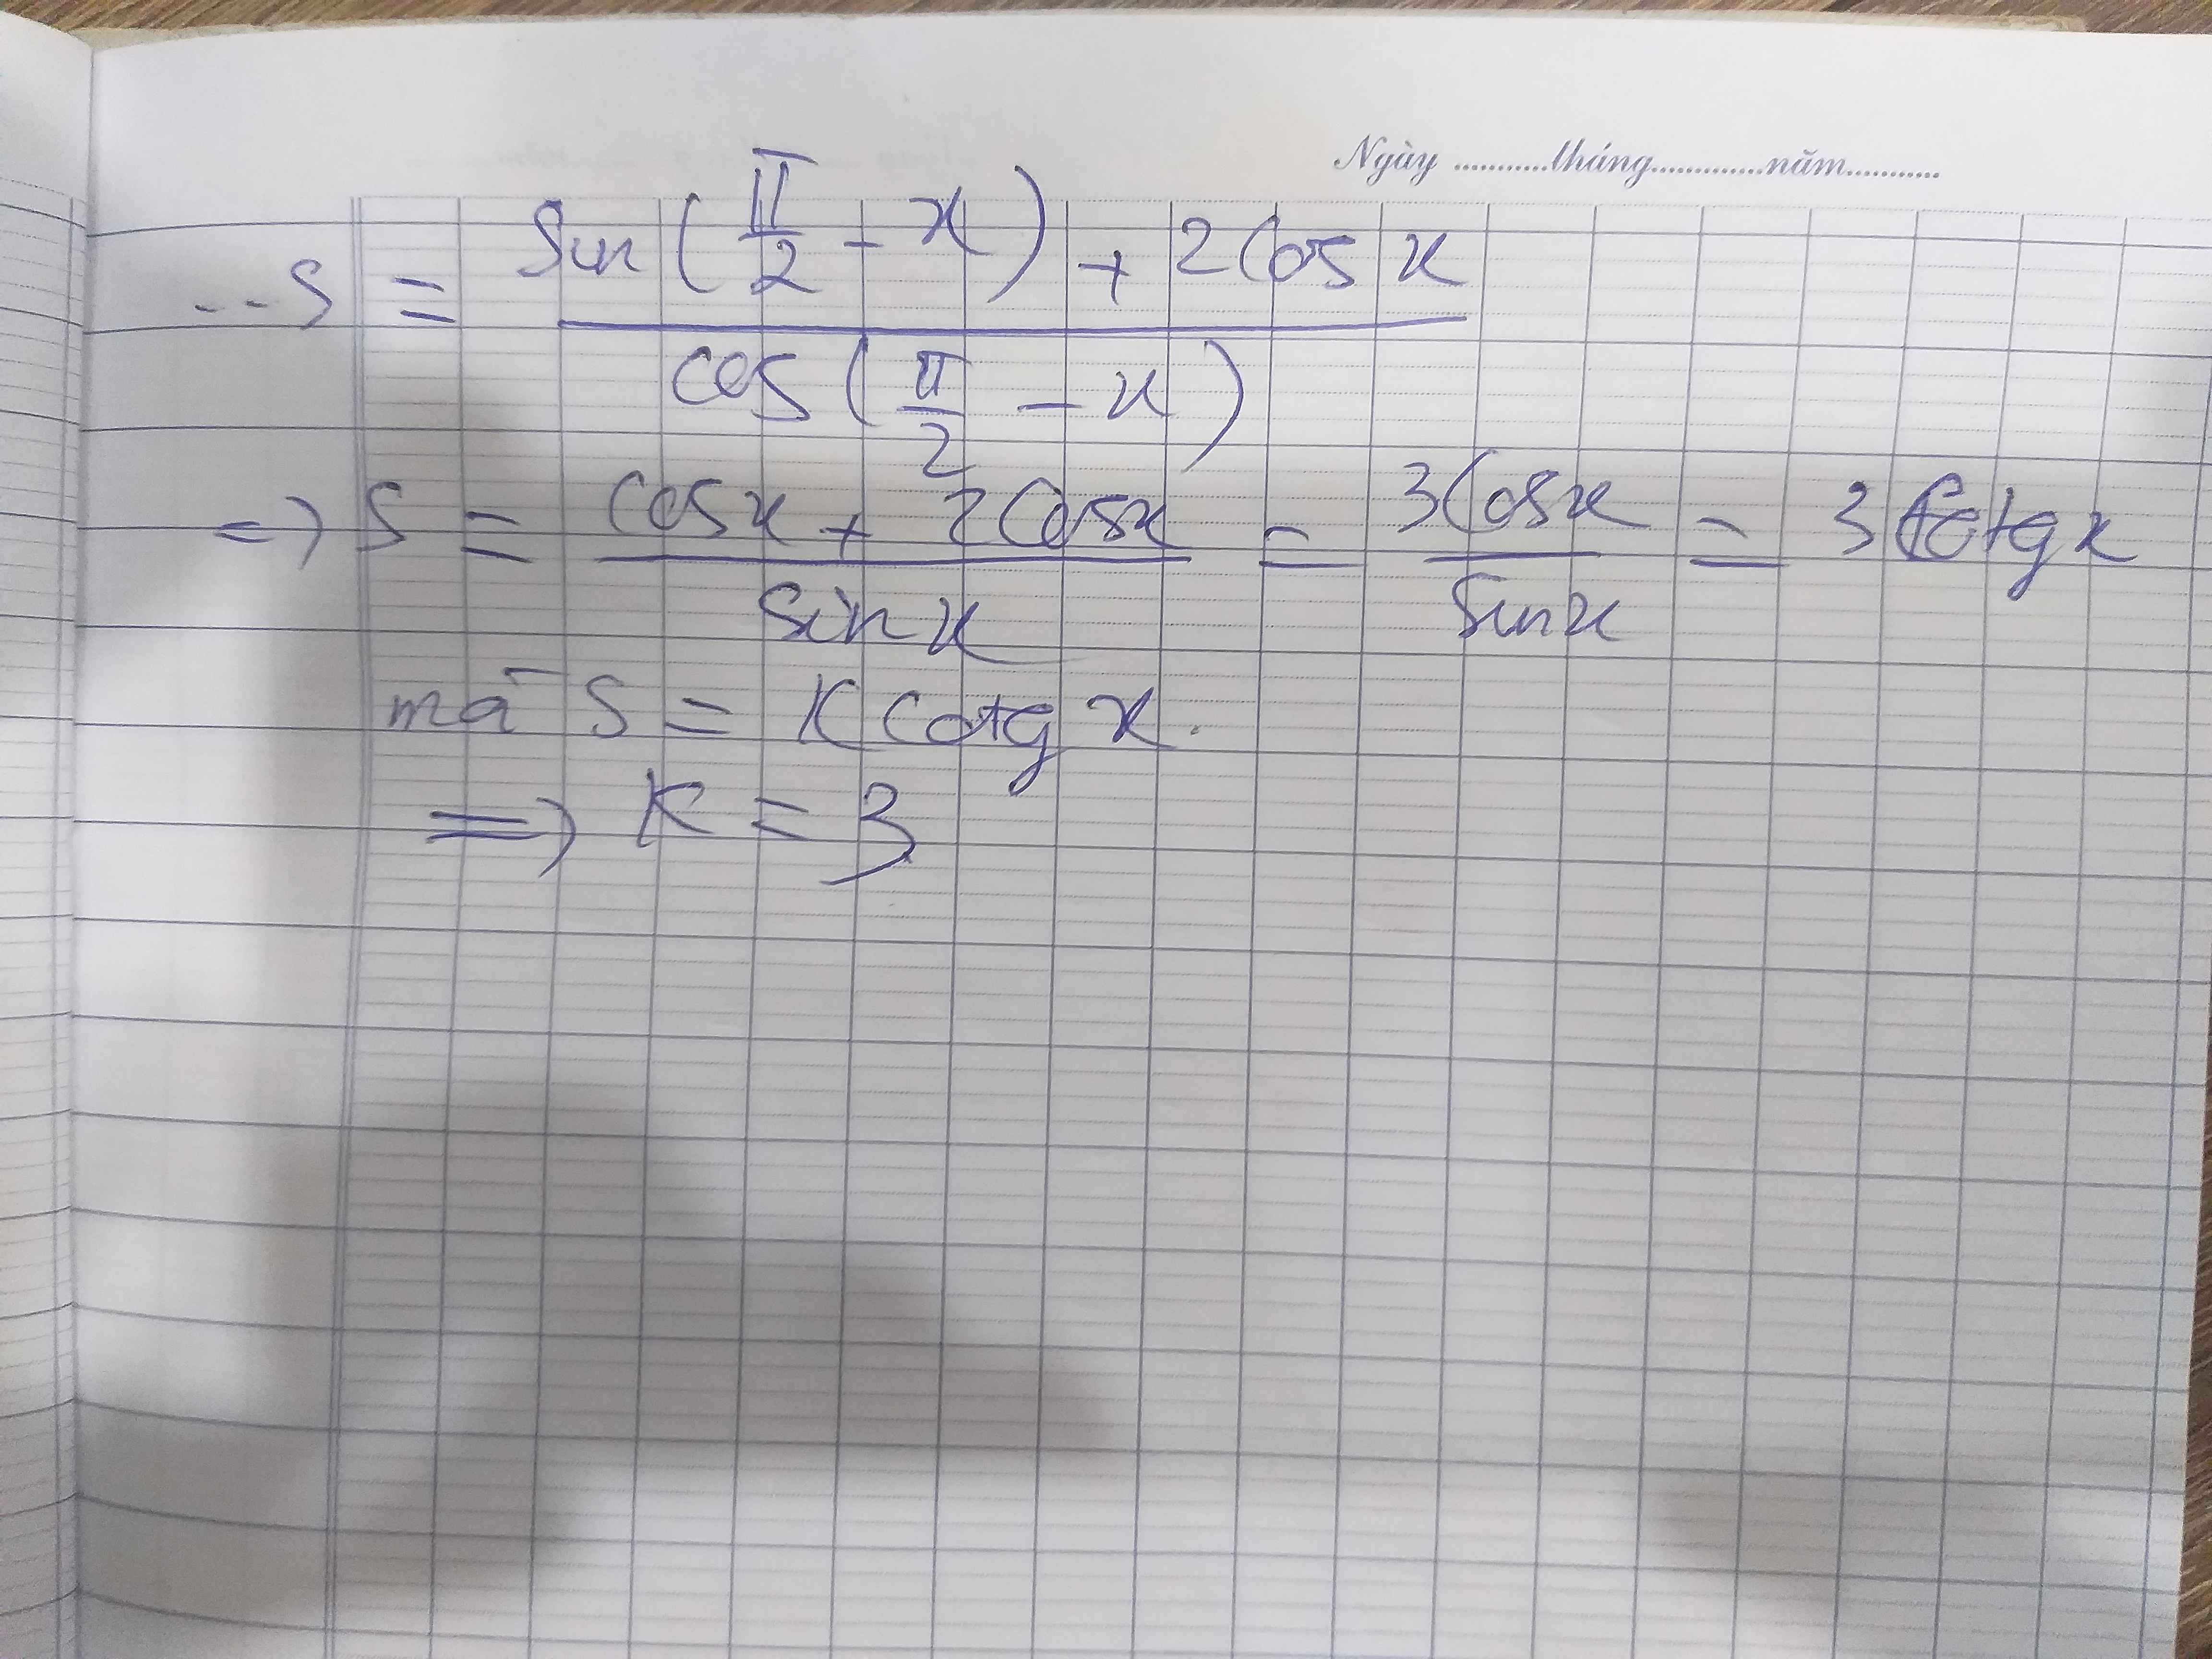 Ngày ...........tháng.............năm...........
--S = sin(π/2 - x) + 2cos x / cos(π/2 - x)
=> S = cosx + 2cosx / sinx = 3cosx / sinx = 3 cotg x
mà S = K cotg x.
=> K = 3